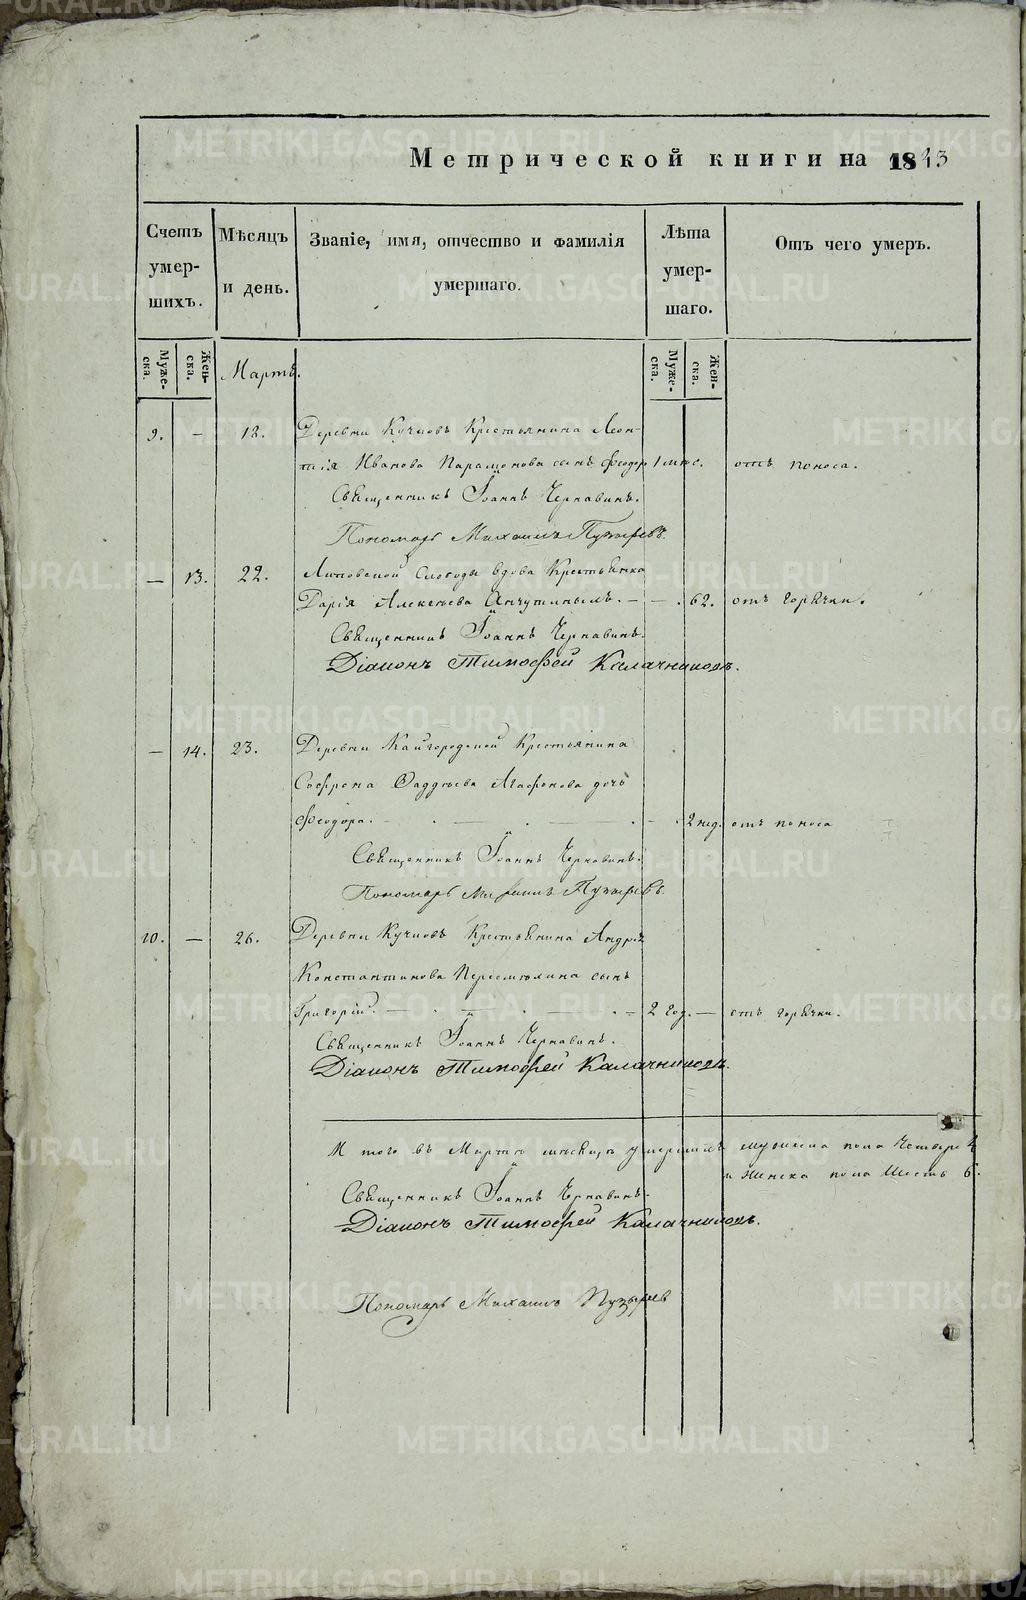 Метрической книги на 1843
Счетъ умер- шихъ.
Мѣсяцъ и день.
Званіе, имя, отчество и фамилія умершаго.
Лѣта умер- шаго.
Отъ чего умеръ.
Муже- ска.
Жен- ска.
Мартъ.
Муже- ска.
Жен- ска.
9. – 18. Деревни Кучковъ Крестьянина Леон-
тія Иванова Парамонова сынъ Феодоръ 1 мѣс. отъ поноса.
Священникъ Іоаннъ Чернавинъ.
Пономарь Михаилъ Пузыревъ.
– 13. 22. Липовской Слободы вдова Крестьянка
Дарія Алексѣева – – 62. отъ горячки.
Священникъ Іоаннъ Чернавинъ.
Діаконъ Тимофей Калачниковъ.
– 14. 23. Деревни Кайгородской Крестьянина
Софрона Фаддѣева Агафонова дочь
Феодора. – 2 нед. отъ поноса
Священникъ Іоаннъ Чернавинъ.
Пономарь Михаилъ Пузыревъ.
10. – 26. Деревни Кучковъ Крестьянина Андрея
Константинова сынъ
Григорій. – 2 год. – отъ горячки.
Священникъ Іоаннъ Чернавинъ.
Діаконъ Тимофей Калачниковъ.
И того въ Мартѣ мѣсяцѣ умершихъ мужеска пола Четыре 4
и женска пола Шесть 6.
Священникъ Іоаннъ Чернавинъ.
Діаконъ Тимофей Калачниковъ.
Пономарь Михаилъ Пузырев
METRIKI.GASO-URAL.RU